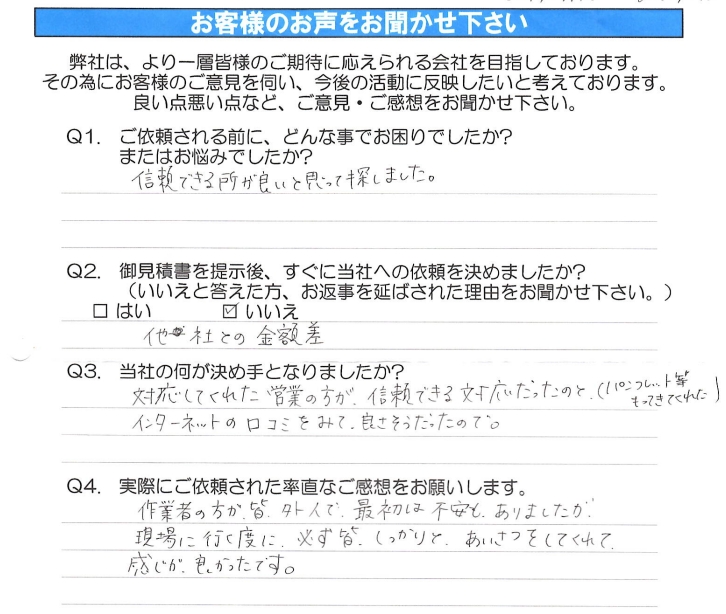 お客様のお声をお聞かせ下さい
弊社は、より一層皆様のご期待に応えられる会社を目指しております。
その為にお客様のご意見を伺い、今後の活動に反映したいと考えております。
良い点悪い点など、ご意見・ご感想をお聞かせ下さい。
Q1. ご依頼される前に、どんな事でお困りでしたか?
またはお悩みでしたか?
信頼できる所が良いと思って探しました。
Q2. 御見積書を提示後、すぐに当社への依頼を決めましたか?
(いいえと答えた方、お返事を延ばされた理由をお聞かせ下さい。)
□ はい ☑ いいえ
他社との金額差
Q3. 当社の何が決め手となりましたか?
対応してくれた営業の方が、信頼できる対応だったのと、(パンフレット等
もってきてくれた)
インターネットの口コミをみて、良さそうだったので。
Q4. 実際にご依頼された率直なご感想をお願いします。
作業者の方が、皆、外人で、最初は不安も、ありましたが、
現場に行く度に、必ず皆、しっかりと、あいさつをしてくれて、
感じが、良かったです。